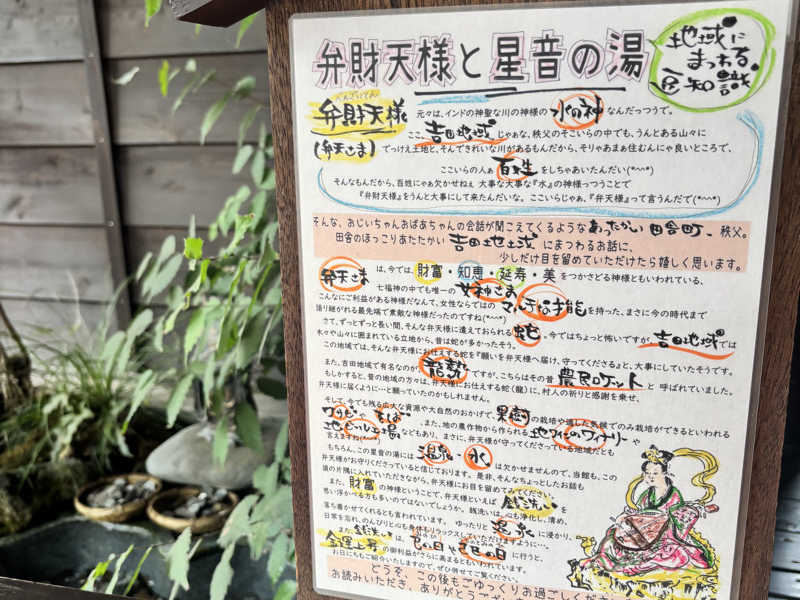 弁財天様と星音の湯
地域に
まつわる
豆知識
べんざいてん
弁財天様
(弁天さま)
元々は、インドの神聖な川の神様の 水の神 なんだっつうで。
ここ、吉田地域 じゃぁな、秩父のそこいらの中でも、うんとある山々に
でっけえ土地と、そんできれいな川があるもんだから、そりゃあまぁ住むんにゃ良いところで、
ここいらの人ぁ 百姓 をしちゃあいたんだい(*^^*)
そんなもんだから、百姓にゃあ欠かせねぇ 大事な大事な『水』の神様っつうことで
『弁財天様』をうんと大事にして来たんだいな。 ここいらじゃあ、『弁天様』って言うんだで(*^^*)
そんな、おじいちゃんおばあちゃんの会話が聞こえてくるような あったかい田舎町、秩父。
田舎のほっこりあたたかい 吉田地域 にまつわるお話に、
少しだけ目を留めていただけたら嬉しく思います。
弁天さま は、今では 財富・知恵・延寿・美 をつかさどる神様ともいわれている、
七福神の中でも唯一の 女神さま
こんなにご利益がある神様だなんて、女性ならではの マルチな才能 を持った、まさに今の時代まで
語り継がれる最先端で素敵な神様だったのですね(*^^*)
さて、ずっとずっと長い間、そんな弁天様に遣えておられる 蛇。今ではちょっと怖いですが、吉田地域 では
水々や山々に囲まれている立地から、昔は蛇が多かったそう。
この地域では、そんな弁天様にお仕えする蛇を『願いを弁天様へ届け、守ってくださる』と、大事にしていたそうです。
また、吉田地域で有名なのが 龍勢 ですが、こちらはその昔 農民ロケット と 呼ばれていました。
もしかすると、昔の地域の方々は、弁天様にお仕えする蛇(龍)に、村人の祈りと感謝を乗せ、
弁天様に届くように…と願っていたのかもしれません。
そして、今でも残る広大な資源や大自然のおかげで、果樹 の栽培や適した気候でのみ栽培ができるといわれる
ワサビ や そば 、また、地の農作物から作られる 地ワインのワイナリー や
地ビール工場 などもあり、まさに、弁天様が守ってくださっている地域だとも
言えますね(*^^*)
もちろん、この星音の湯に 温泉・水 は欠かせませんので、当館も、この
弁天様がお守りくださっていると信じております。是非、そんなちょっとしたお話も
頭の片隅に入れていただきながら、弁天様にお目を留めてみてください。
また、財富 の神様ということで、弁天様といえば 銭洗い を
思い浮かべる方も多いのではないでしょうか。銭洗いは、心も浄化し、清め、
落ち着かせてくれるとも言われています。 ゆったりと 温泉 に浸かり、
日常を忘れ、のんびりと心も身体もリラックスしていただけますように…
また、銭洗い は、巳の日 や 己巳の日 に行うと、
金運上昇 の御利益がさらに高まるともいわれています。
お日にちもご紹介いたしますので、ぜひ併せてご覧ください。
どうぞ、この後もごゆっくりお過ごしくだ
お読みいただき、ありがとうござ